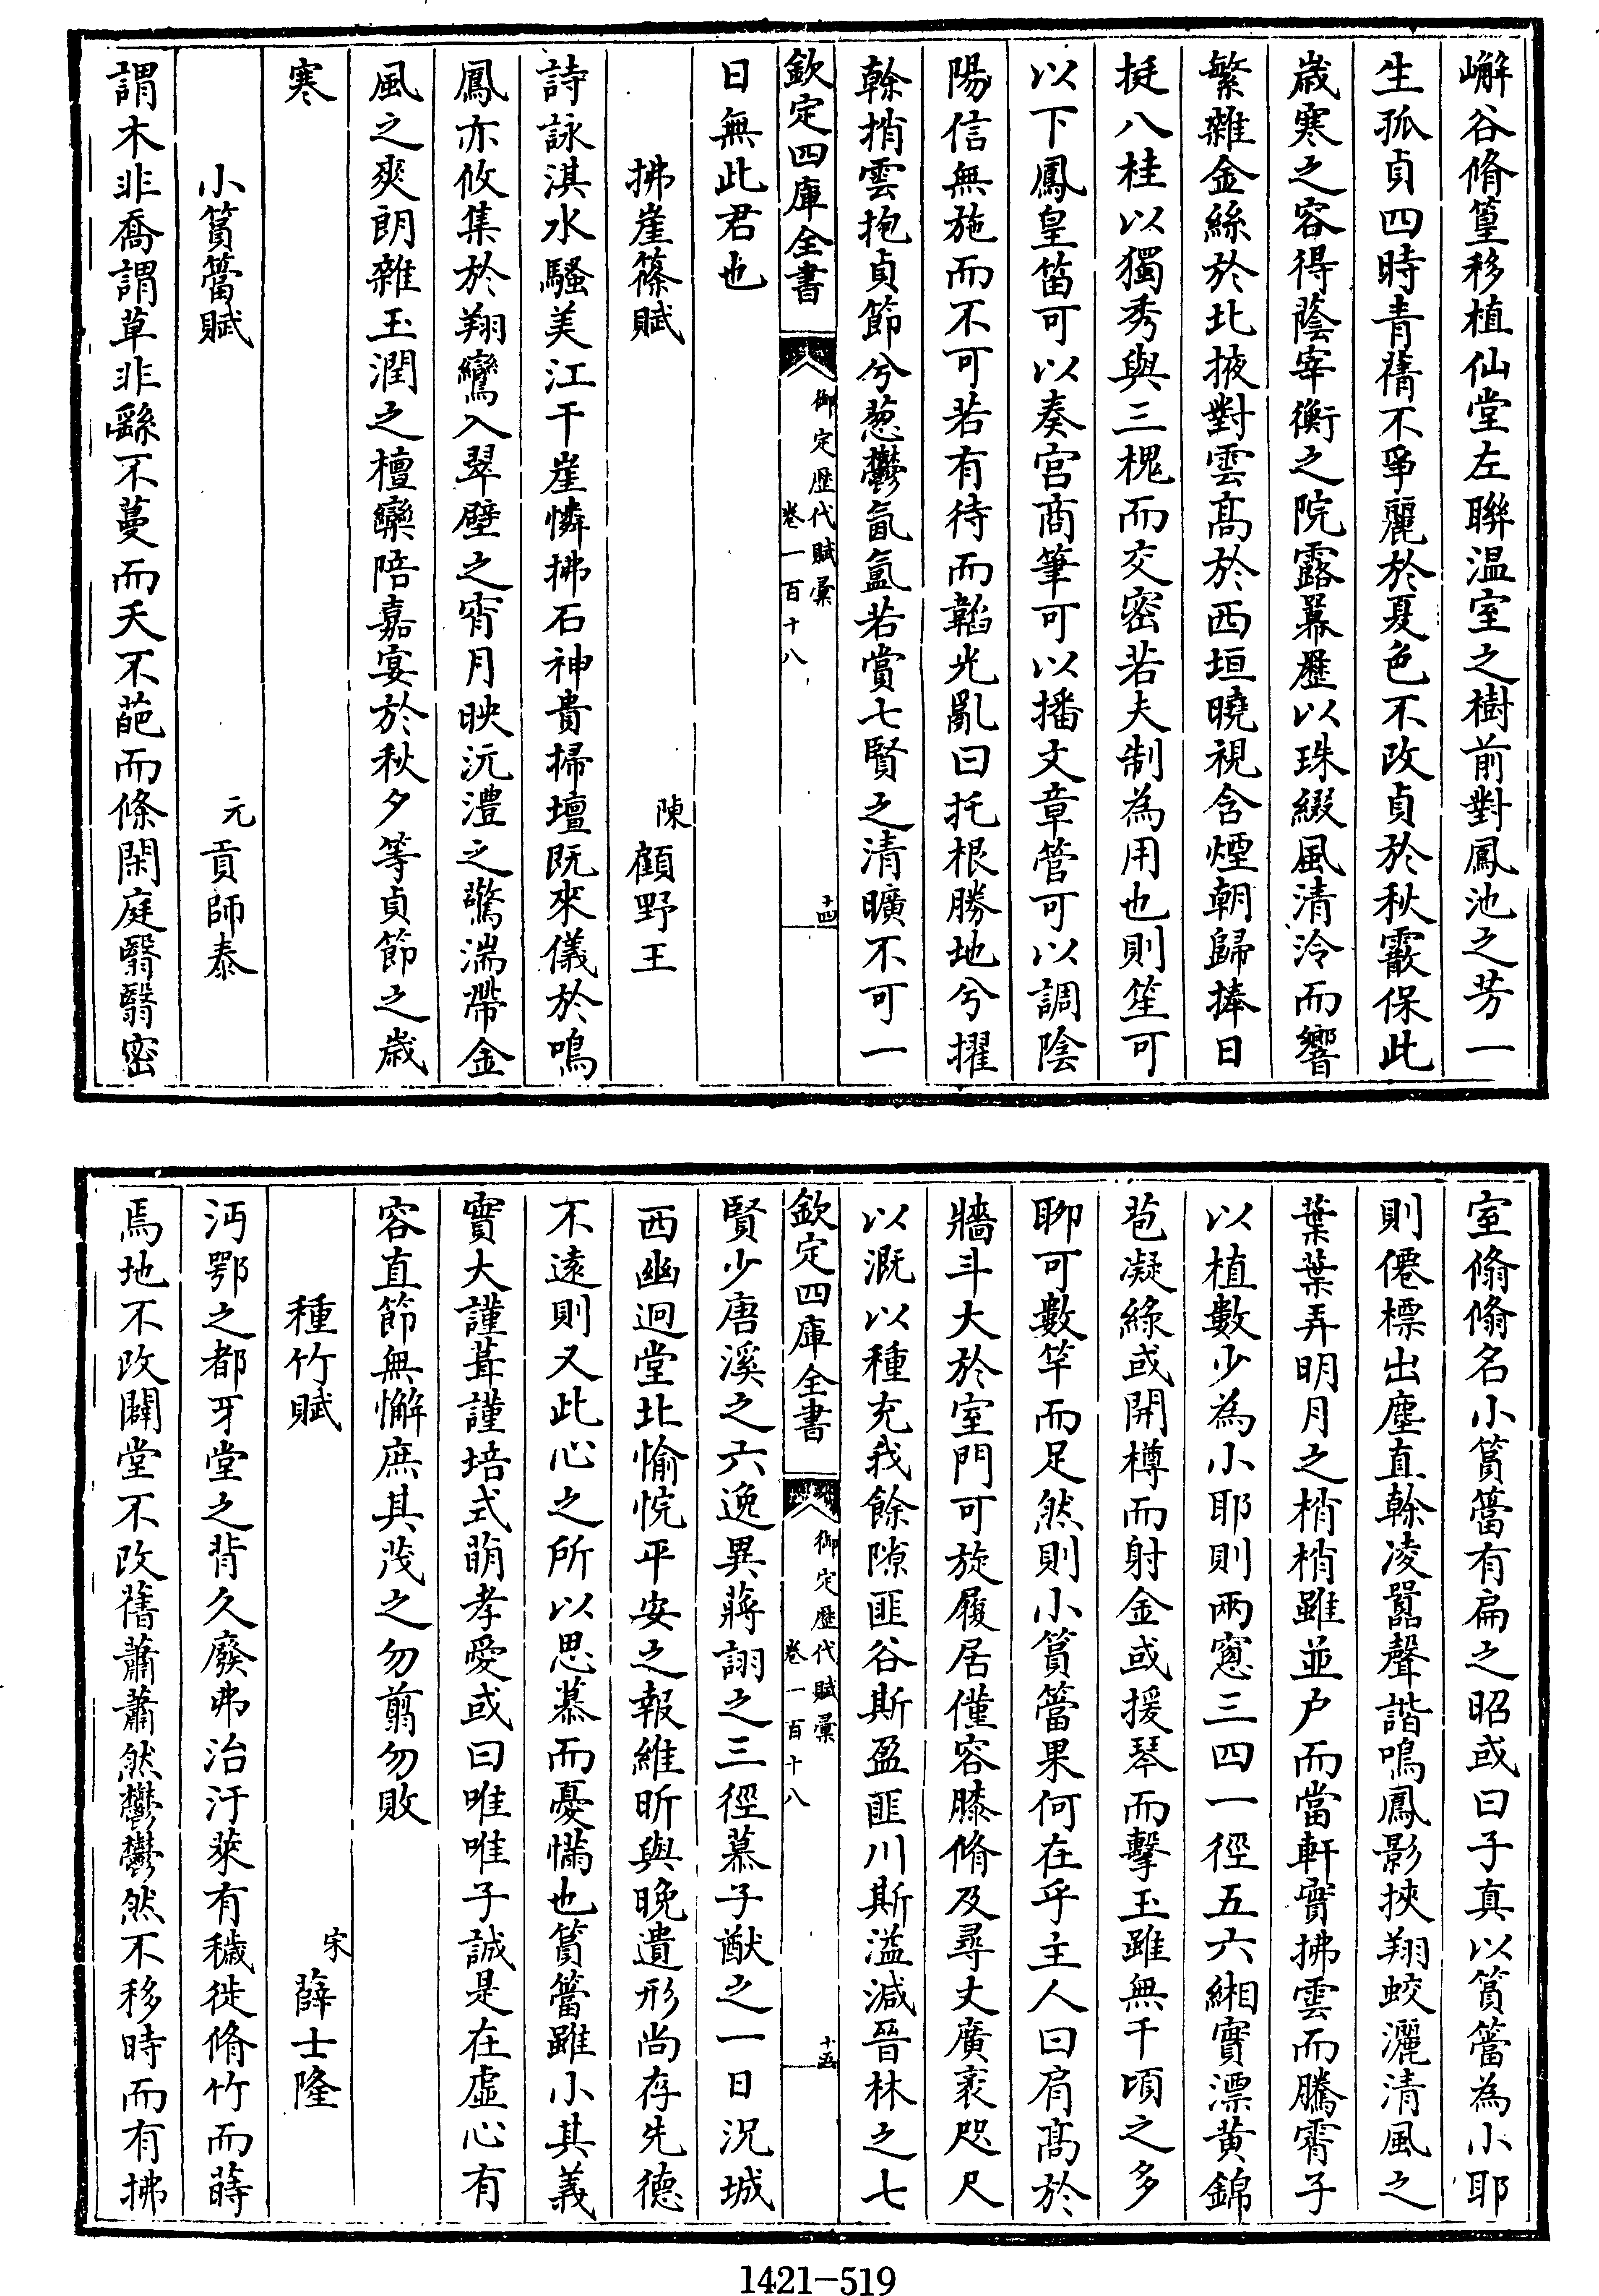 嶰谷脩篁移植仙堂左聯溫室之樹前對鳳池之芳一
生孤貞四時青蒨不爭麗於夏色不改貞於秋霰保此
歲寒之容得蔭宰衡之院露羃歷以珠綴風清泠而響
繁雜金絲於北掖對雲髙於西垣曉視含煙朝歸捧日
挺八桂以獨秀與三槐而交密若夫制為用也則笙可
以下鳳皇笛可以奏宫商筆可以播文章管可以調陰
陽信無施而不可若有待而韜光亂曰托根勝地兮擢
榦捎雲抱貞節兮葱鬱氤氲若賞七賢之清曠不可一
欽定四庫全書
御定歷代賦彙
卷一百十八
十四
日無此君也
拂崖篠賦
陳
顧野王
詩詠淇水騷美江干崖憐拂石神貴掃壇既來儀於鳴
鳳亦攸集於翔鸞入翠壁之宵月映沅澧之驚湍帶金
風之爽朗雜玉潤之檀欒陪嘉宴於秋夕等貞節之歲
寒
小篔簹賦
元
貢師泰
謂木非喬謂草非繇不蔓而夭不葩而條閑庭翳翳密
室翛翛名小篔簹有扁之昭或曰子真以篔簹為小耶
則僊標出塵直榦凌嚣聲諧鳴鳳影挾翔蛟灑清風之
葉葉弄明月之梢梢雖並户而當軒實拂雲而騰霄子
以植數少為小耶則兩窻三四一徑五六緗實漂黄錦
苞凝綠或開樽而射金或援琴而擊玉雖無千頃之多
聊可數竿而足然則小篔簹果何在乎主人曰肩髙於
牆斗大於室門可旋履居僅容膝脩及尋丈廣袤咫尺
以溉以種充我餘隙匪谷斯盈匪川斯溢減晉林之七
欽定四庫全書
御定歷代賦彙
卷一百十八
十五
賢少唐溪之六逸異蔣詡之三徑慕子猷之一日況城
西幽迥堂北愉怳平安之報維昕與晚遺形尚存先德
不遠則又此心之所以思慕而憂懣也篔簹雖小其義
實大謹葺謹培式萌孝愛或曰唯唯子誠是在虛心有
容直節無懈庶其茂之勿翦勿敗
種竹賦
宋
薛士隆
沔鄂之都牙堂之背久廢弗治汙萊有穢徙脩竹而蒔
焉地不改闢堂不改舊蕭蕭然鬱鬱然不移時而有拂
1421—519